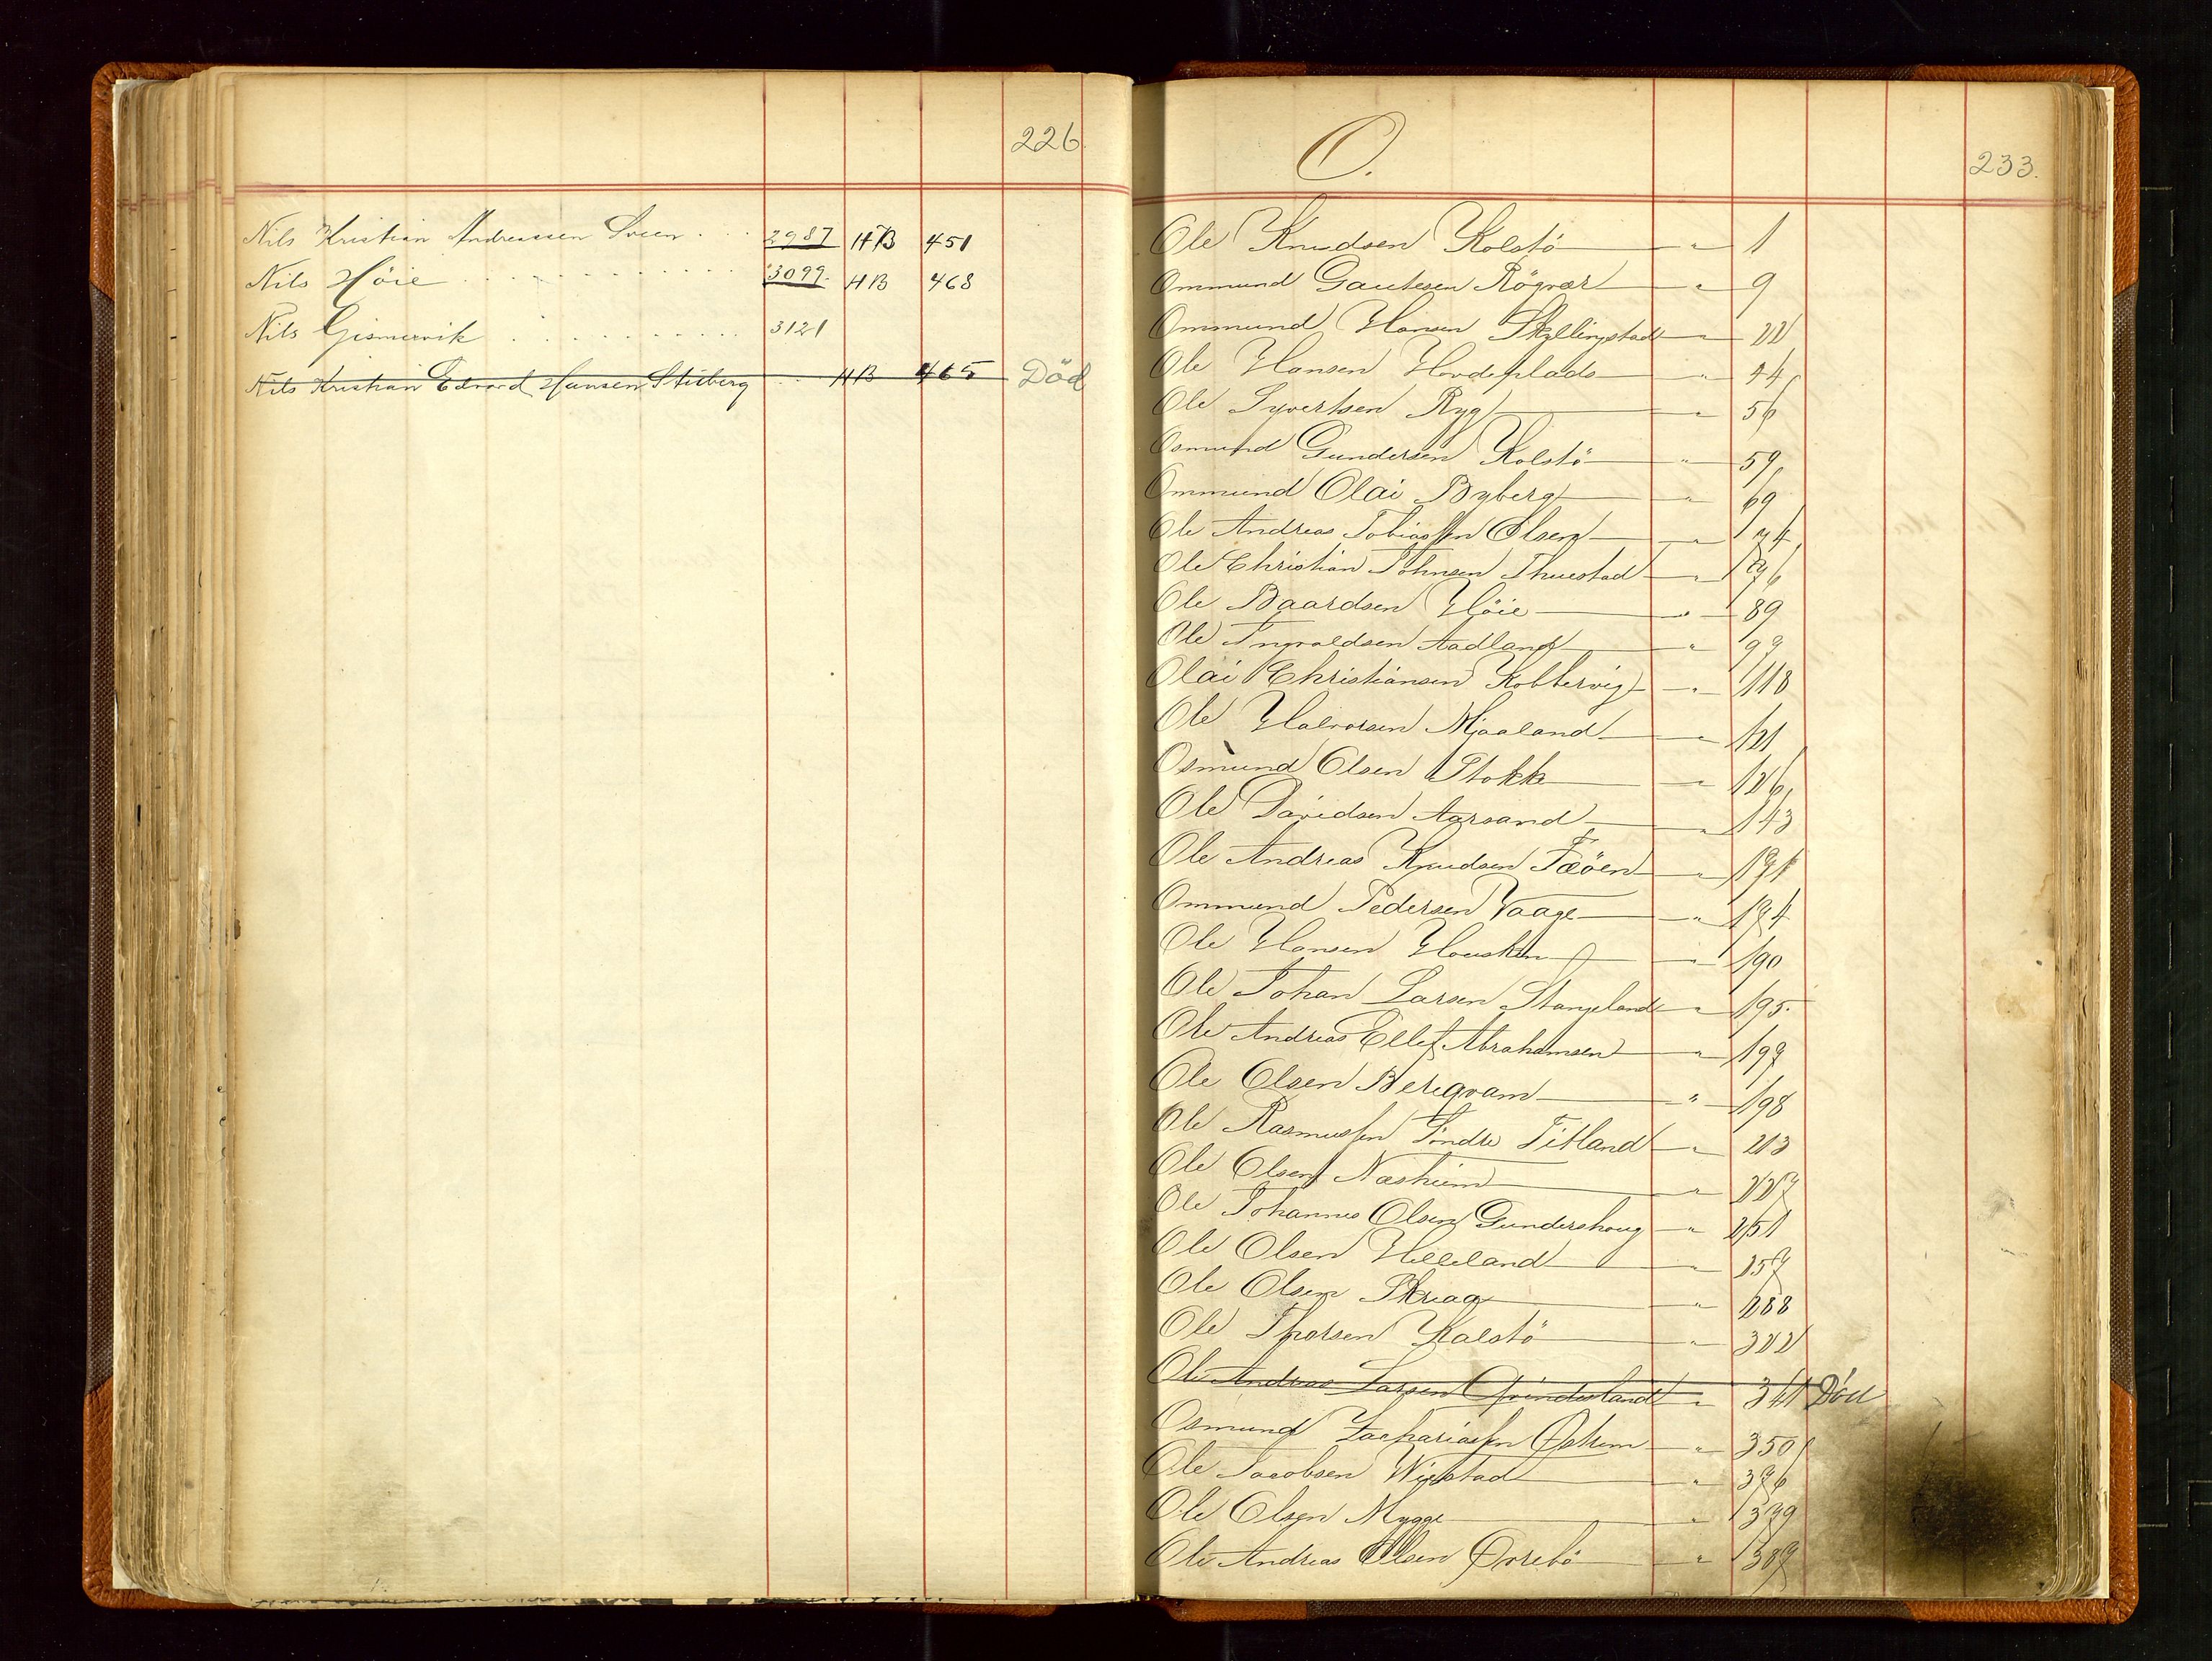 226
Nils Kristian Andreassen Sveen . . . 2987 HB 451
Nils Höie . . . . . . . . . . . . 3099. HB 468
Nils Gismervik . . . . . . . . . . 3121
Nils Kristian Edvard Hansen Stuberg . . . HB 465 Död
O.
233.
Ole Knudsen Kolstö — " — 1
Ommund Gautesen Rögvær — " — 9
Ommund Hansen Skyllingstad — " — 22
Ole Hansen Hovdeplads — " — 44
Ole Syvertsen Ryg — " — 56
Osmund Gundersen Kolstö — " — 59
Ommund Olai Byberg — " — 69
Ole Andreas Tobiassen Olsen — " — 74
Ole Christian Johnsen Thuestad — " — 76
Ole Baardsen Höie — " — 89
Ole Ingvaldsen Aadland — " — 97
Olai Christiansen Kobbervig — " — 118
Ole Halvorsen Mjaaland — " — 121
Osmund Olsen Stokke — " — 126
Ole Davidsen Aarsand — " — 143
Ole Andreas Knudsen Fæöen — " — 171
Ommund Pedersen Vaage — " — 174
Ole Hansen Housken — " — 190
Ole Johan Larsen Stangeland — " — 195
Ole Andreas Ellef Abrahamsen — " — 197
Ole Olsen Beregvam — " — 198
Ole Rasmussen Söndre Titland — " — 213
Ole Olsen Næsheim — " — 227
Ole Johannes Olsen Gundershoug — " — 251
Ole Olsen Helleland — " — 257
Ole Olsen Skraag — " — 288
Ole Thorsen Kalstö — " — 322
Ole Andreas Larsen Qvindesland — " — 341 Död
Osmund Zachariasen Østrem — " — 350
Ole Jacobsen Wiestad — " — 376
Ole Olsen Mygge — " — 379
Ole Andreas Olsen Ørrebö — " — 387